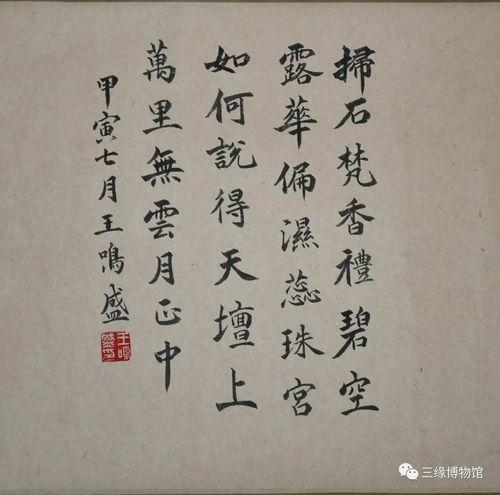 掃石梵香禮碧空
露華偏濕蕊珠宮
如何說得天壇上
萬里無雲月正中
甲寅七月王鳴盛
三缘博物馆